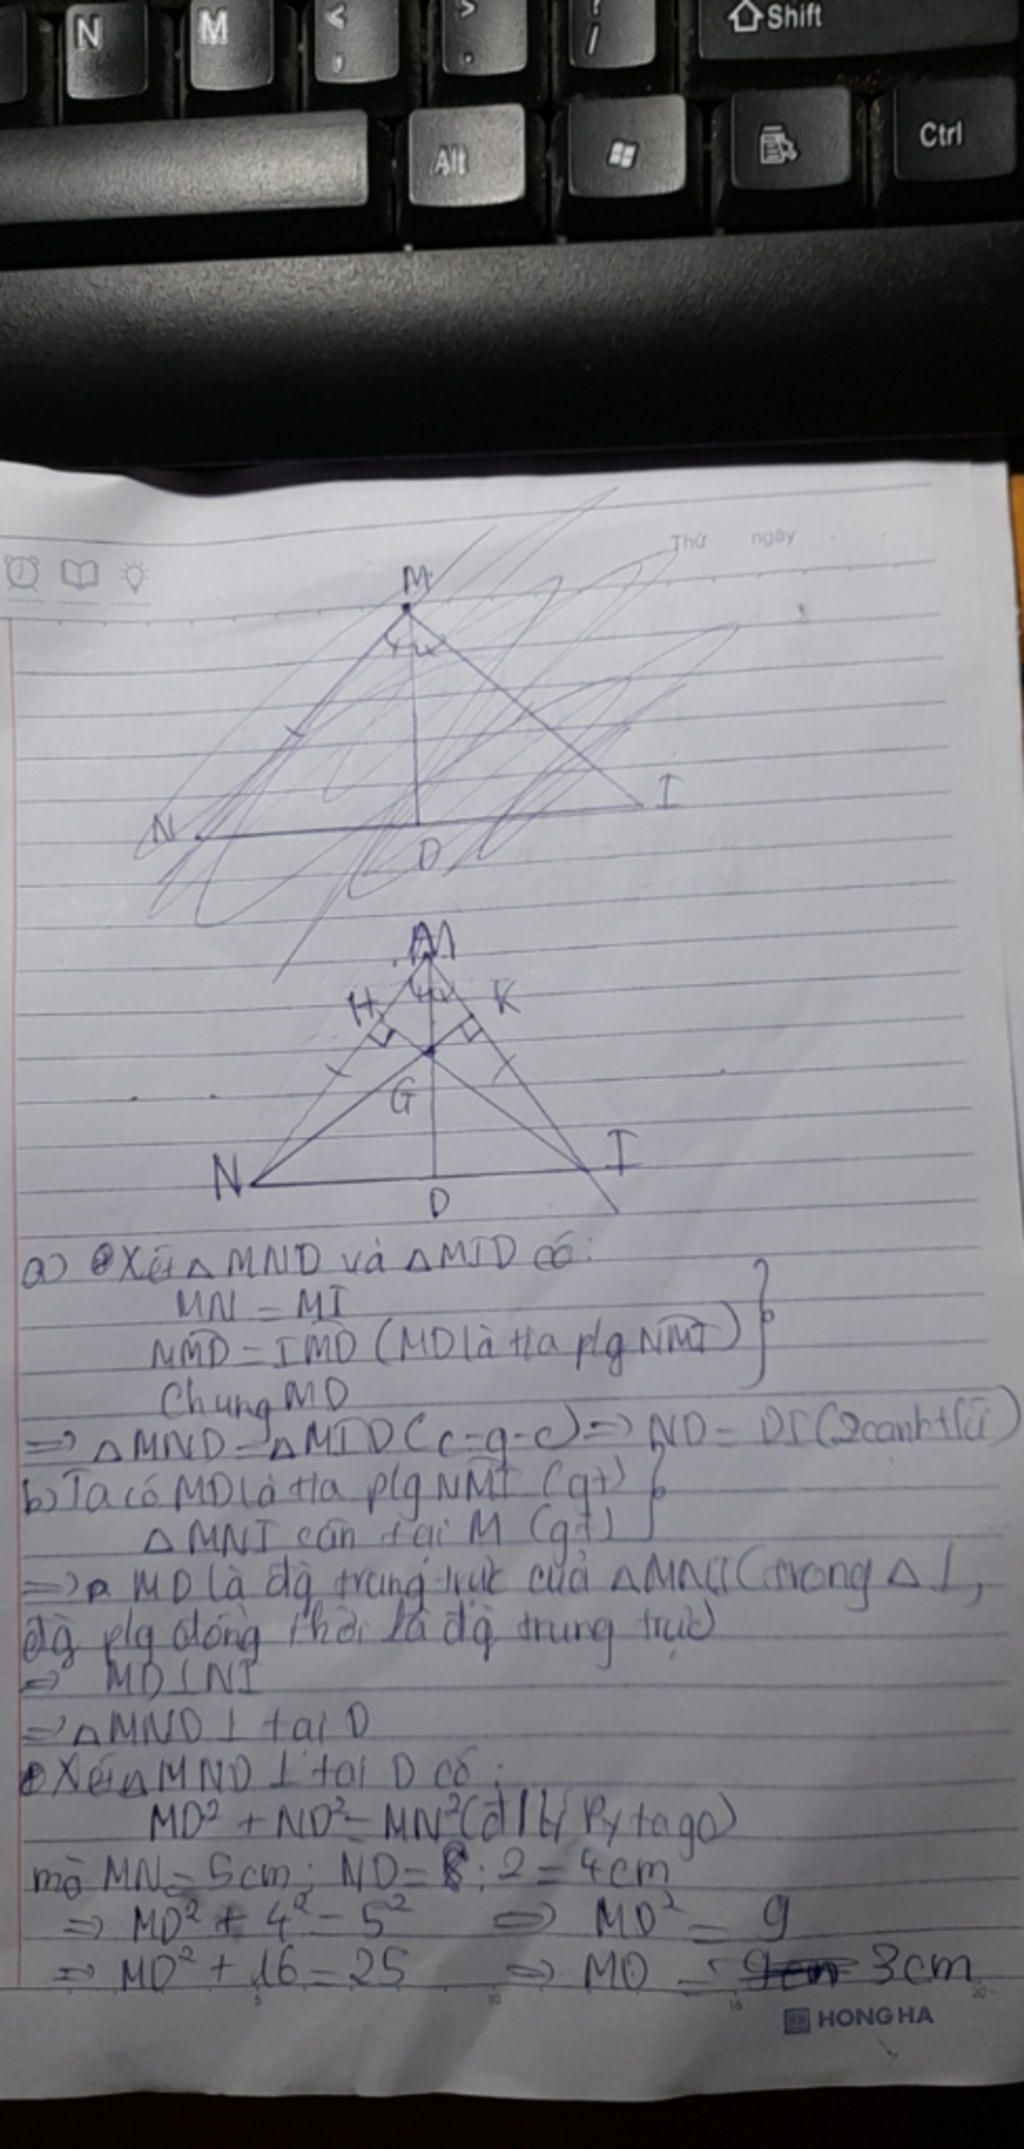 N M < , > . ? / Shift
Alt Ctrl
Thứ ngày
M
N D I
M
H K
G
N D I
a) Xét △MND và △MID có:
MN = MI
NMD = IMD (MD là tia p/g NMI)
Chung MD
=> △MND = △MID (c-g-c) => ND = DI (2 cạnh t/ứ)
b) Ta có MD là tia p/g NMI (gt)
△MNI cân tại M (gt)
=> MD là đg̀ trung trực của △MNI (trong △ ⊥,
đg̀ p/g đồng thời là đg̀ trung trực)
=> MD ⊥ NI
=> △MND ⊥ tại D
Xét △MND ⊥ tại D có:
MD² + ND² = MN² (đ/lý Pytago)
mà MN = 5cm; ND = 8 : 2 = 4cm
=> MD² + 4² = 5² => MD² = 9
=> MD² + 16 = 25 => MD = 3cm
5 10 15 20
HONG HA